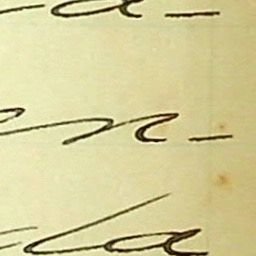 a-
en-
da